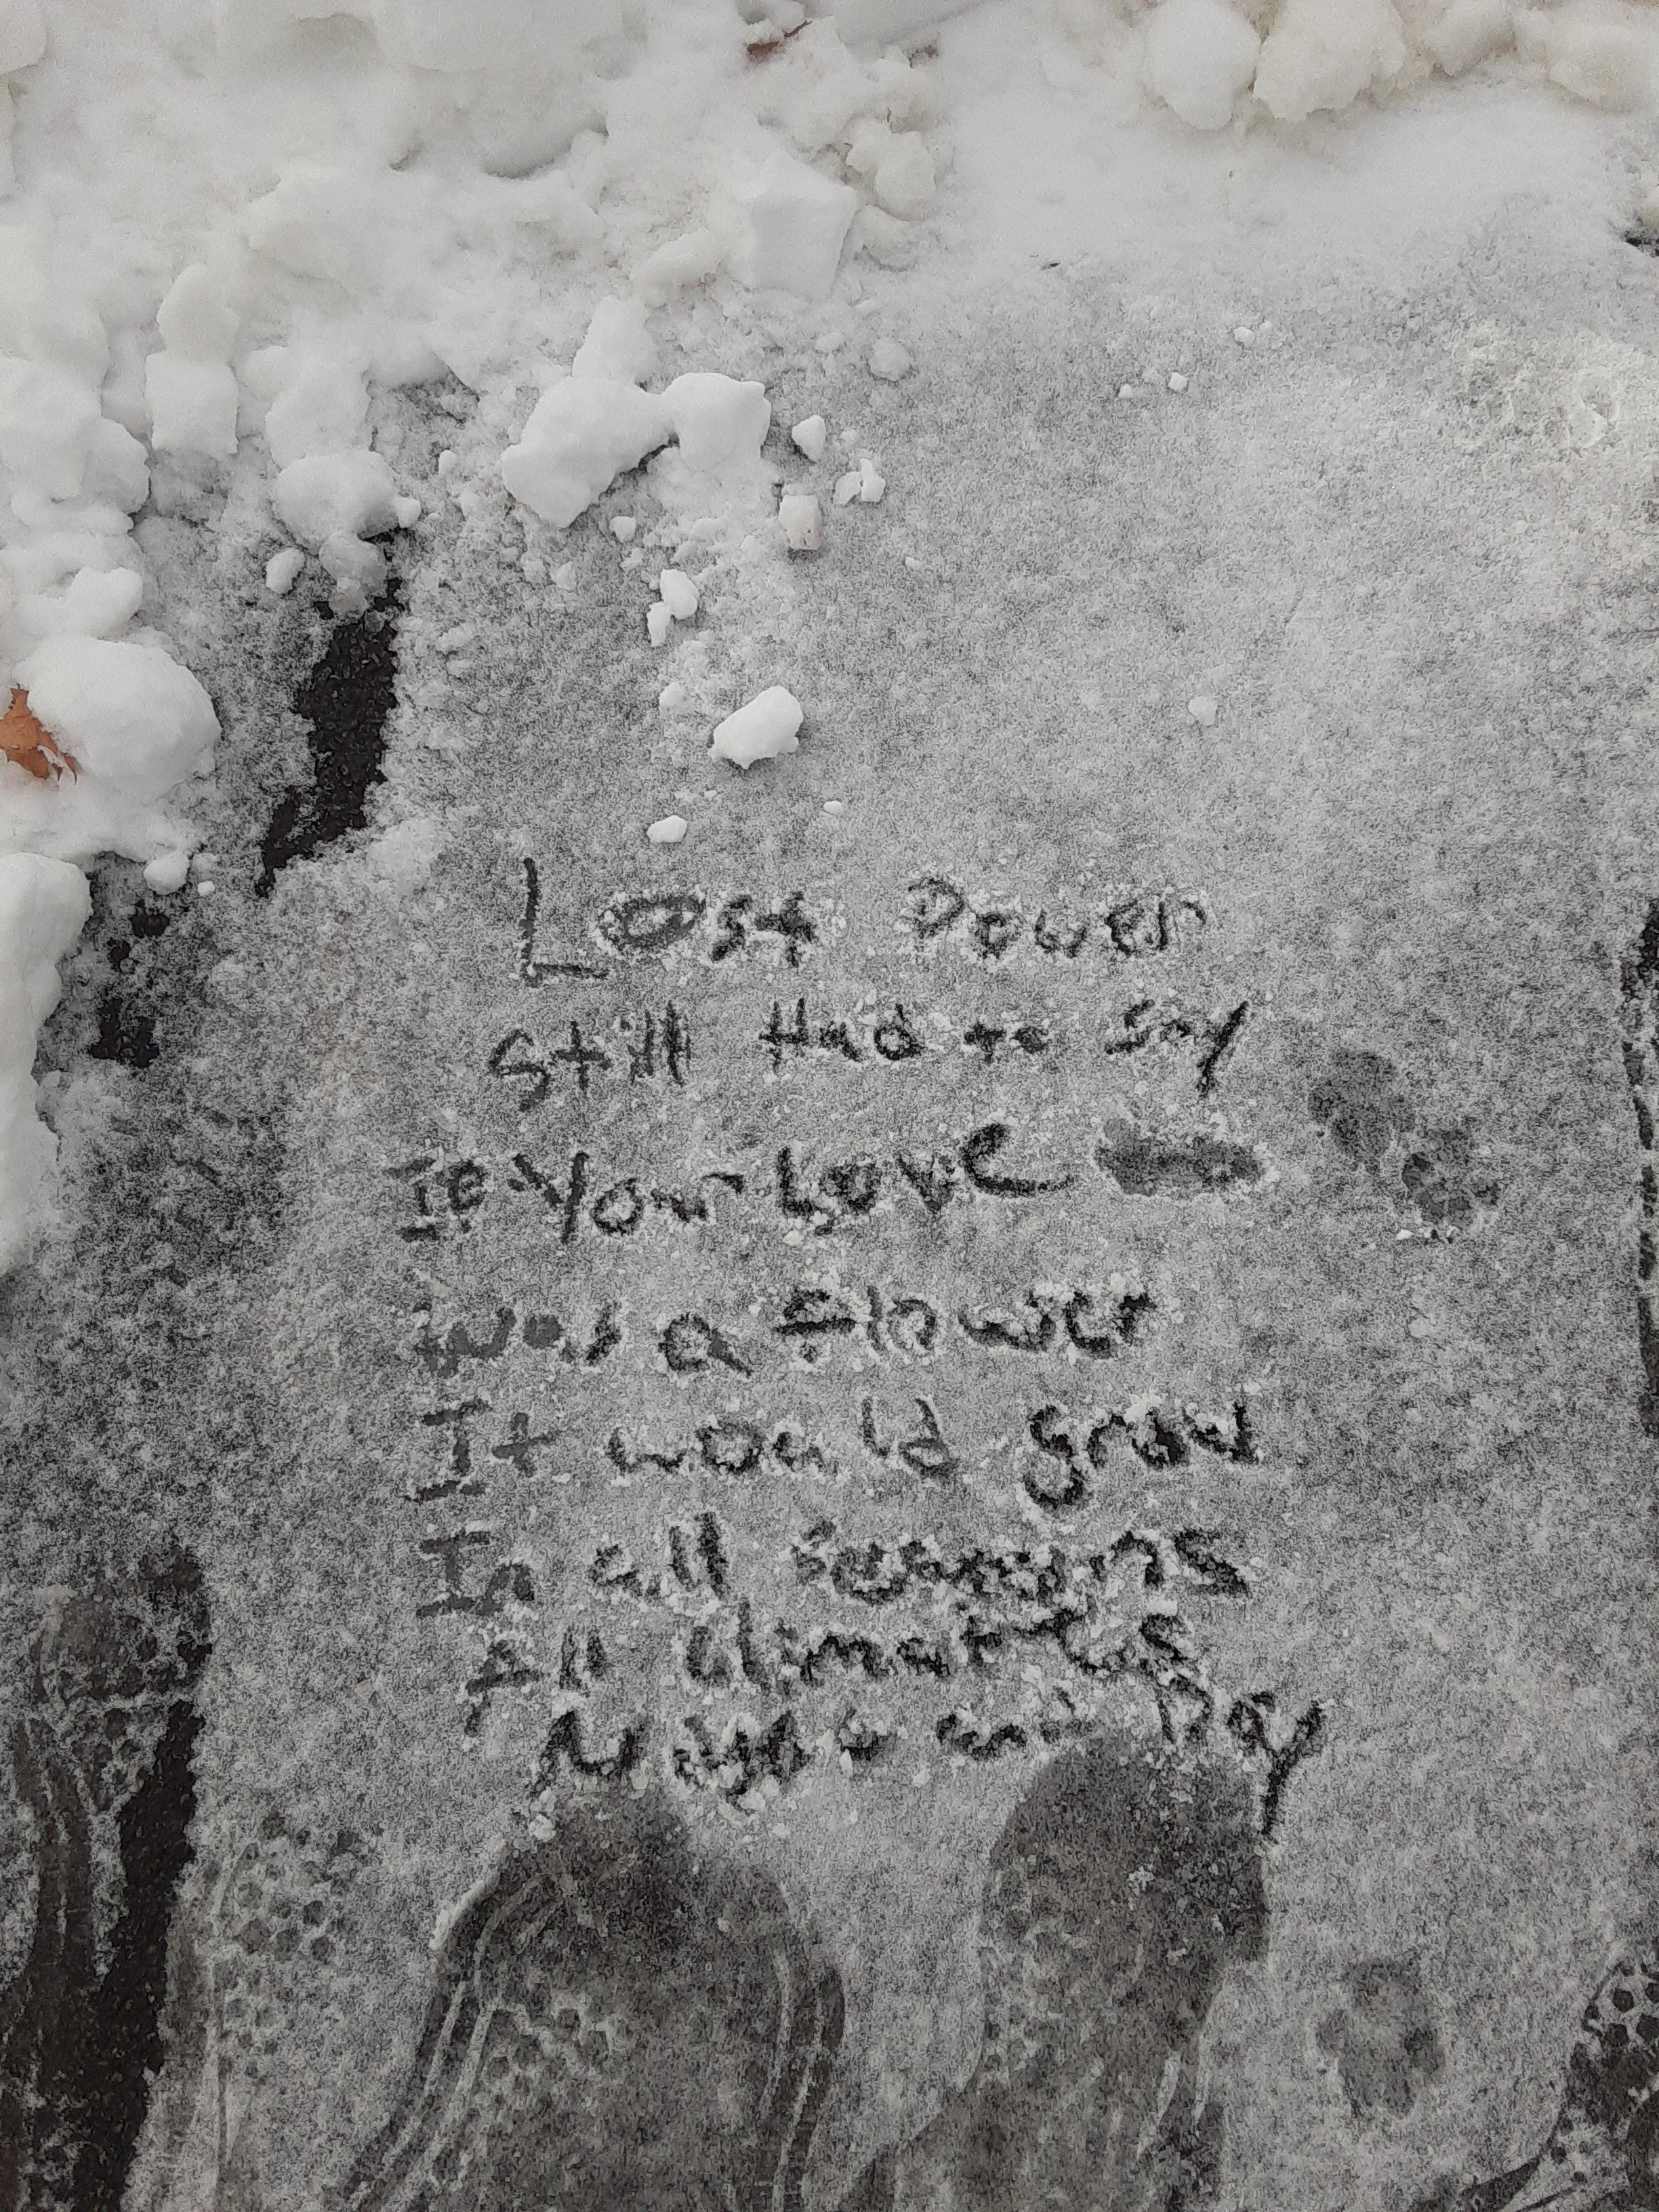 Lost Power
Still Had to Say
If Your Love
Was a flower
It would grow
In all seasons
All climates
and Day